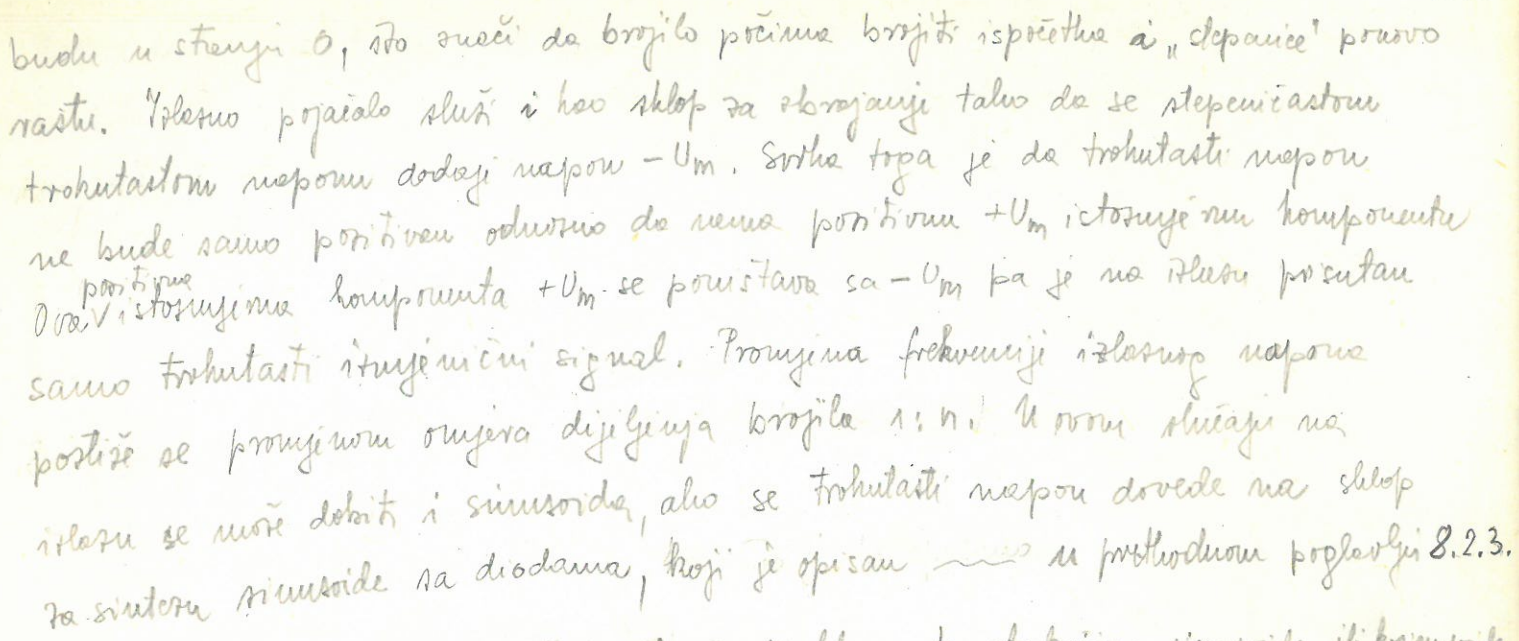 budu u stanju 0, što znači da brojilo počima brojiti ispočetka i „stepenice" ponovo
rastu. Izlazno pojačalo služi i kao sklop za zbrajanje tako da se stepeničastom
trokutastom naponu dodaje napon -Um. Svrha toga je da trokutasti napon
ne bude samo pozitivan odnosno da nema pozitivnu +Um istosmjernu komponentu
Ova pozitivna istosmjerna komponenta +Um se poništava sa -Um pa je na izlazu prisutan
samo trokutasti izmjenični signal. Promjena frekvencije izlaznog napona
postiže se promjenom omjera dijeljenja brojila 1:n. U ovom slučaju na
izlazu se može dobiti i sinusoida, ako se trokutasti napon dovede na sklop
za sintezu sinusoide sa diodama, koji je opisan u prethodnom poglavlju 8.2.3.